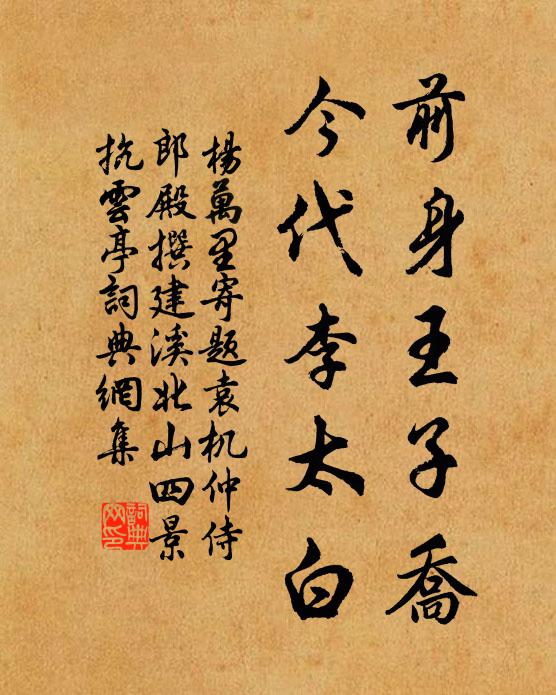 前身王子喬
今代李太白
楊萬里寄題袁机仲侍
郎殿撰建溪北山四景
抗雲亭詞典網集
詞典網印